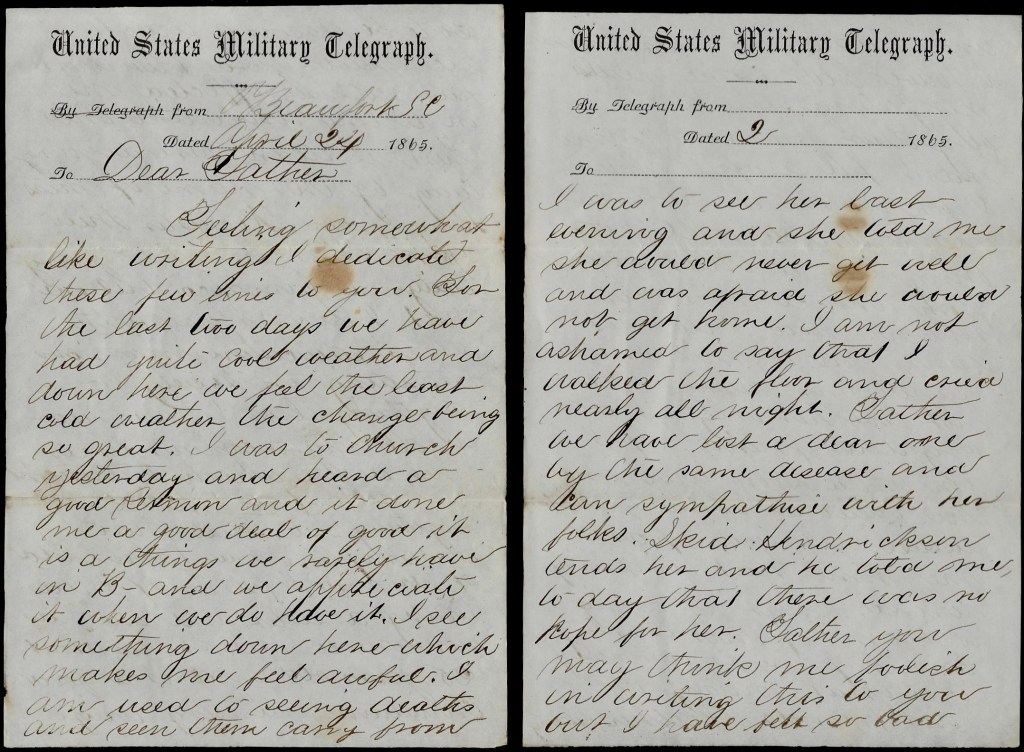 United States Military Telegraph.
By Telegraph from Beaufort S C
Dated April 24 1865.
To Dear Father
Feeling somewhat
like writing I dedicate
these few lines to you. For
the last two days we have
had quite cool weather and
down here we feel the least
cold weather, the change being
so great. I was to Church
yesterday and heard a
good Sermon and it done
me a good deal of good it
is a things we rarely have
in B- and we appreciate
it when we do have it. I see
something down here which
makes me feel awful. I
am used to seeing deaths
and seen them carry from
United States Military Telegraph.
By Telegraph from
Dated 2 1865.
To
I was to see her last
evening and she told me
she would never get well
and was afraid she would
not get home. I am not
ashamed to say that I
walked the floor and cried
nearly all night. Father
we have lost a dear one
by the same disease and
can sympathise with her
folks. Skid Hendrickson
tends her and he told me,
to day that there was no
hope for her. Father you
may think me foolich
in writing this to you
but I have felt so bad